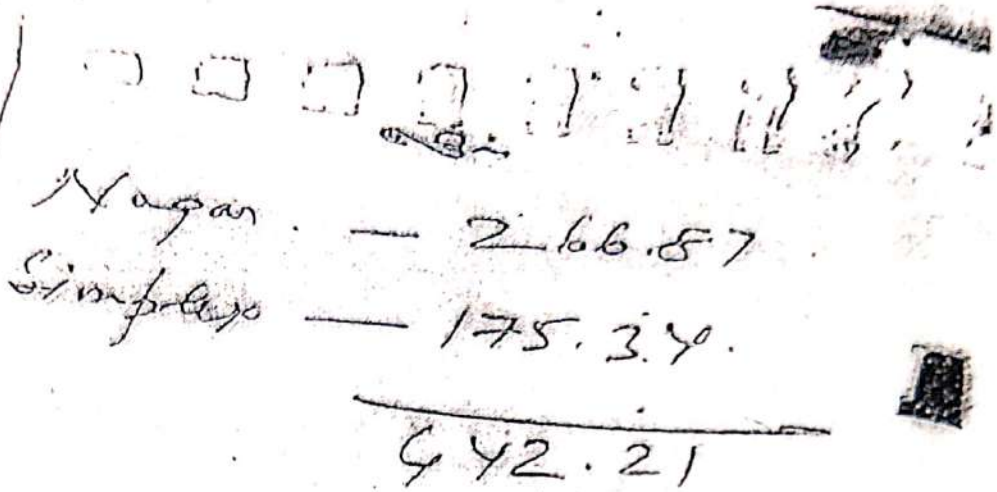 Nagar - 266.87
Simplex - 175.34.
442.21